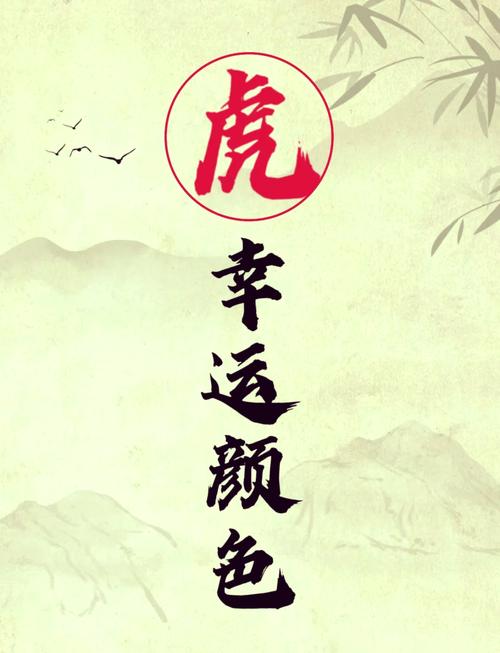 虎
幸运颜色